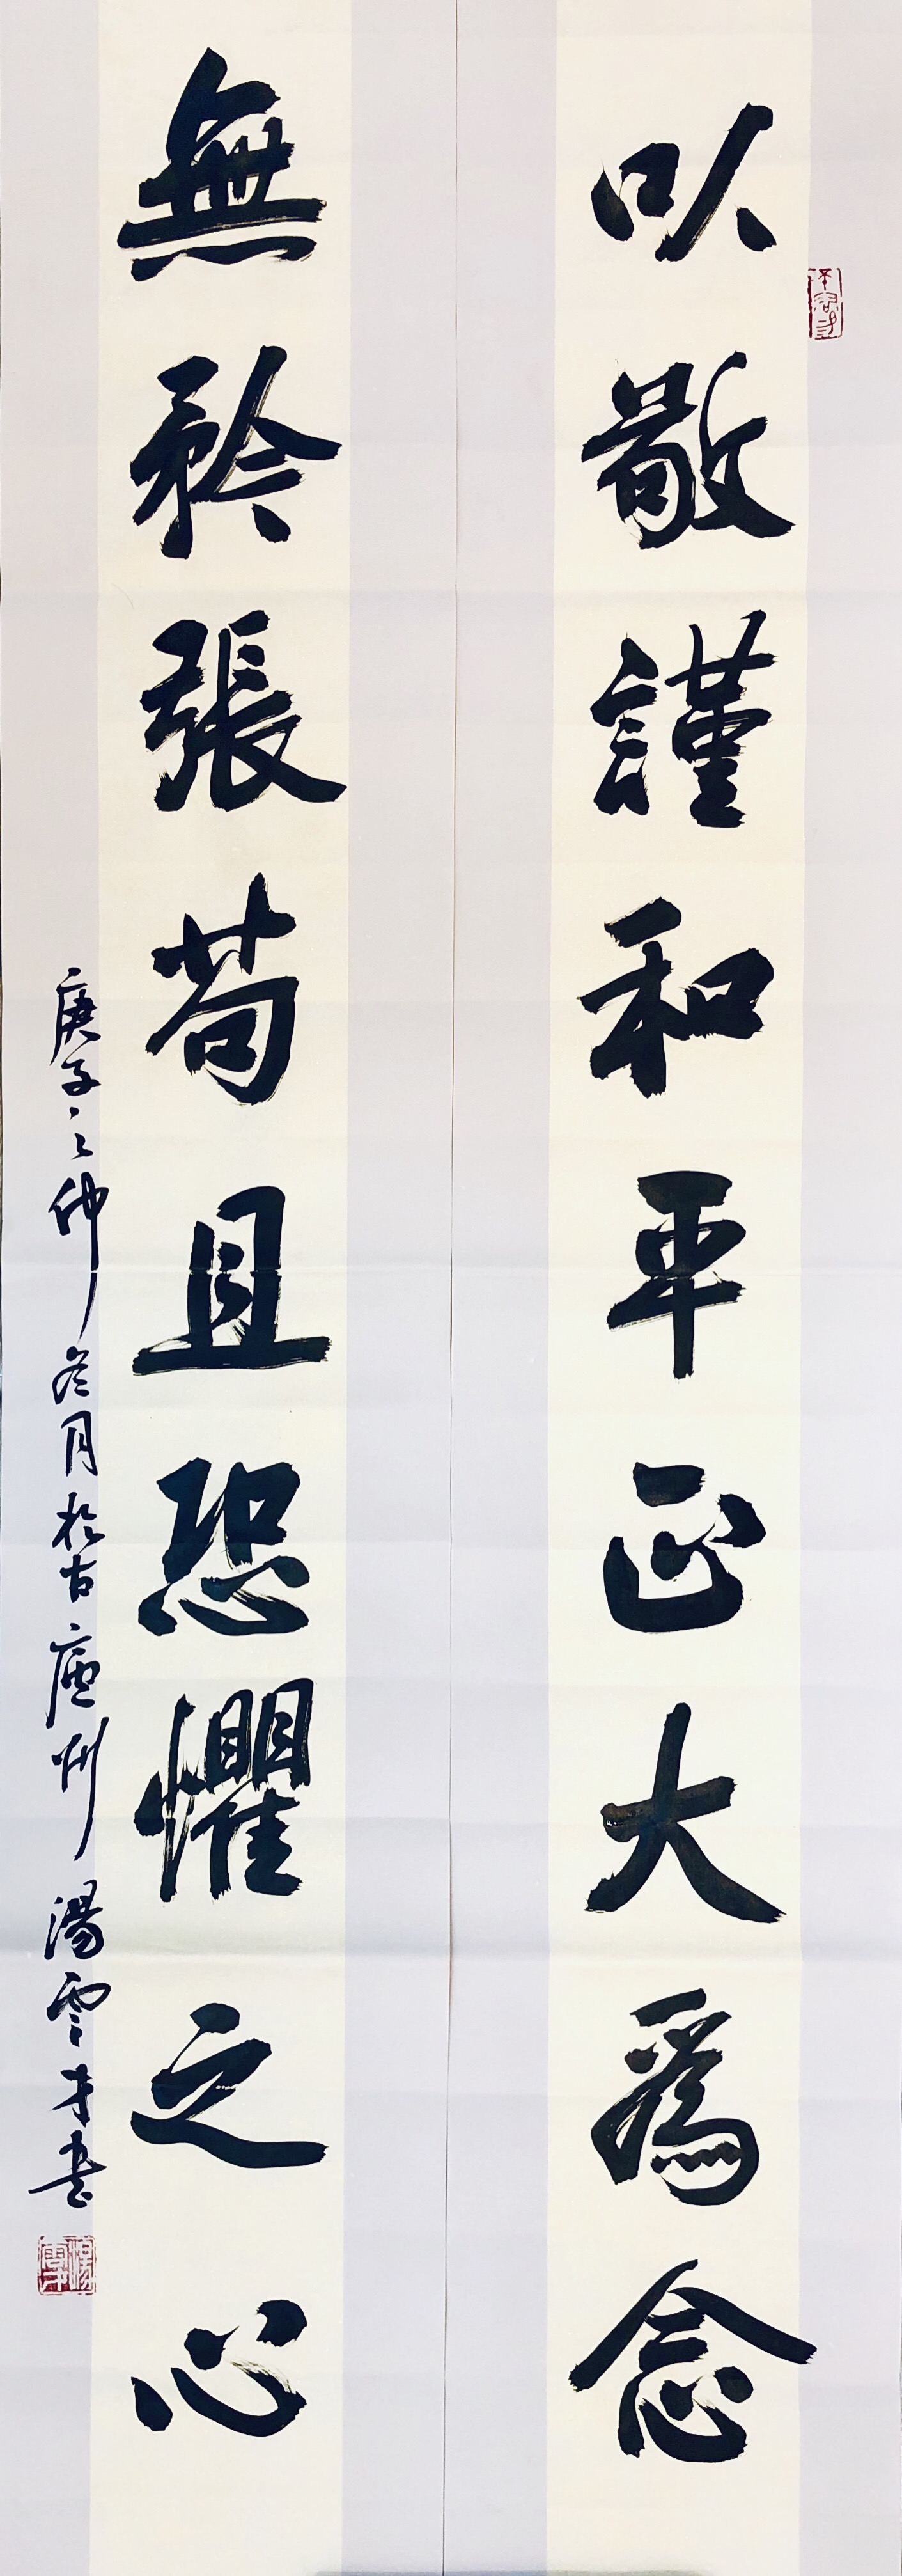 以敬謹和平正大爲念
無矜張苟且恐懼之心
庚子之仲冬月於古廬州湯雲才書